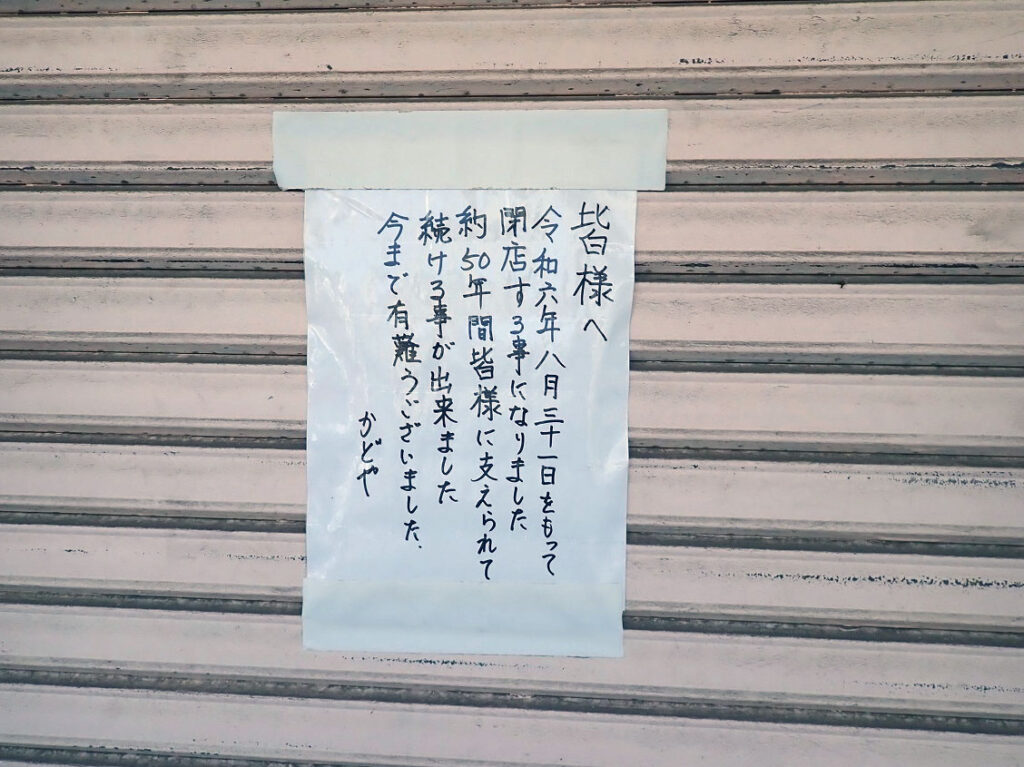 皆様へ
令和六年八月三十一日をもって
閉店する事になりました
約50年間皆様に支えられて
続ける事が出来ました
今まで有難うございました.
かどや